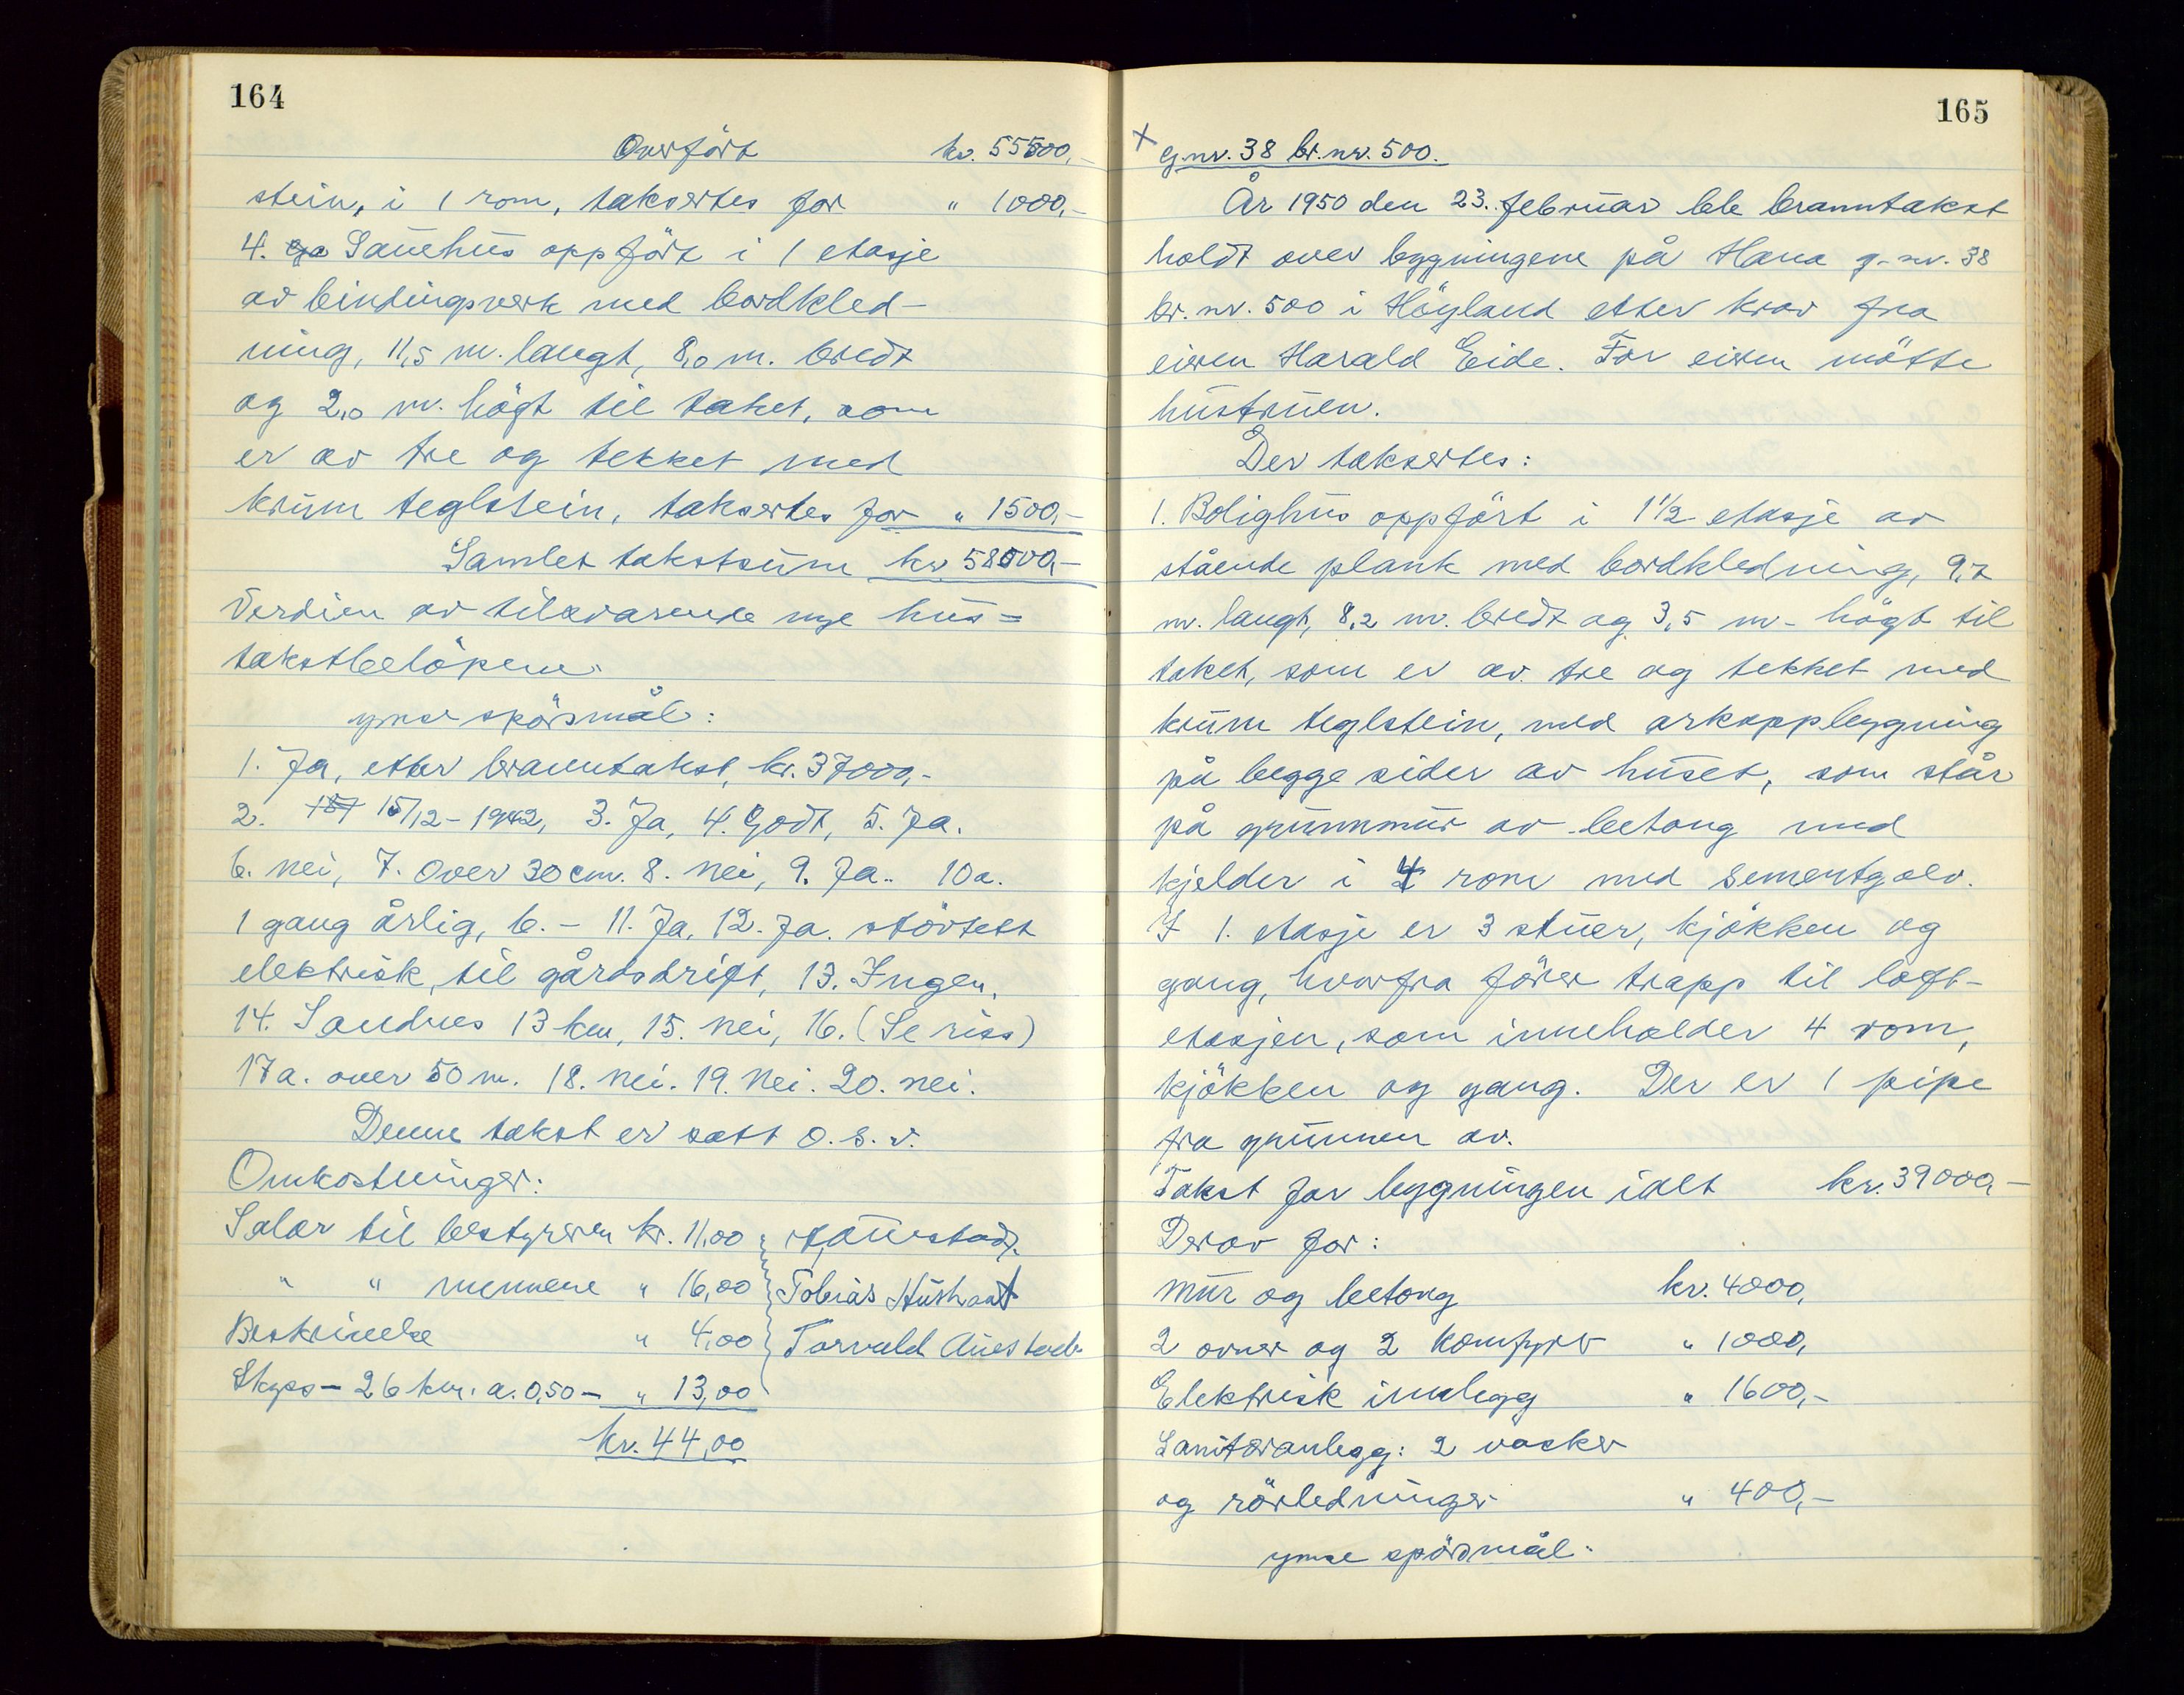 164
Overfört kr. 55500,-
stein, i 1 rom, taksertes for " 1000,-
4. Sauehus oppfört i 1 etasje
av bindingsverk med bordkled-
ning, 11,5 m. langt, 8,0 m. bredt
og 2,0 m. högt til taket, som
er av tre og tekket med
krum teglstein, taksertes for " 1500,-
Samlet takstsum kr 58000,-
Verdien av tilsvarende nye hus =
takstbelöpene.
Ymse spörsmål:
1. Ja, etter branntakst, kr. 37000,-
2. 15/12-1942, 3. Ja, 4. Godt, 5. Ja.
6. Nei, 7. Over 30 cm. 8. Nei, 9. Ja.. 10a.
1 gang årlig, b. - 11. Ja, 12. Ja. störtelt
elektrisk, til gårdsdrift, 13. Ingen.
14. Sandnes 13 km, 15. Nei, 16. (Se riss)
17a. over 50 m. 18. Nei. 19. Nei. 20. Nei.
Denne takst er satt o. s. v.
Omkostninger:
Salær til bestyreren kr. 11,00
" " mennene " 16,00 Tobias Hushant
Beskrivelse " 4,00 Torvald Auestad
Skyss - 26 km. a. 0,50 - " 13,00
kr. 44,00
165
x g.nr. 38 br.nr. 500.
År 1950 den 23. februar ble branntakst
holdt over bygningene på Hana g.nr. 38
br.nr. 500 i Höyland etter krav fra
eieren Harald Eide. For eieren mötte
hustruen.
Der taksertes:
1. Bolighus oppfört i 1 1/2 etasje av
stående plank med bordkledning, 9,7
m. langt, 8,2 m. bredt og 3,5 m. högt til
taket, som er av tre og tekket med
krum teglstein, med arkoppbygning
på begge sider av huset, som står
på grunnmur av betong med
kjelder i 4 rom med sementgolv.
I 1. etasje er 3 stuer, kjökken og
gang, hvorfra förer trapp til loft-
etasjen, som inneholder 4 rom,
kjökken og gang. Der er 1 pipe
fra grunnen av.
Takst for bygningen ialt kr. 39000,-
Derav for:
Mur og betong kr. 4000,
2 ovner og 2 komfyrer " 1000,
Elektrisk innlegg " 1600,-
Sanitæranlegg: 2 vasker
og rörledninger " 400,-
Ymse spörsmål: